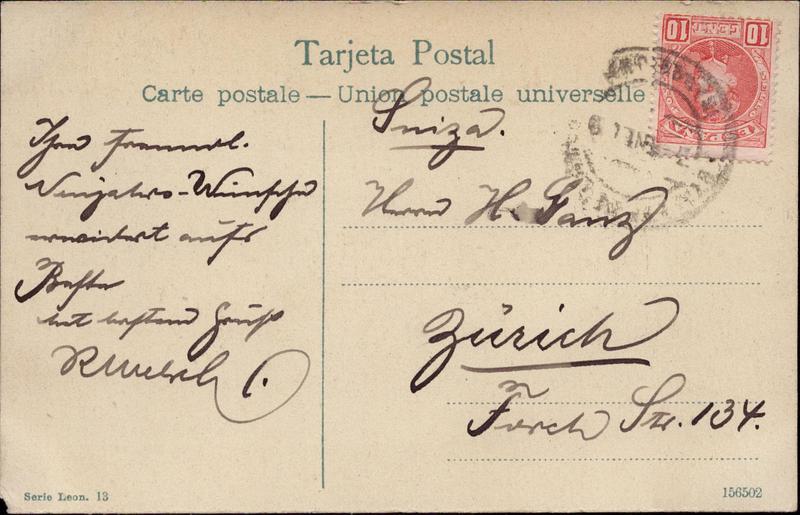 Tarjeta Postal
Carte postale — Union postale universelle
10 CENT. 10
ESPAÑA
Ihre freundl.
Neujahrs-Wünsche
erwidert aufs
Beste
mit bestem Gruß
Suiza.
Herrn H. Ganz
Zürich
Forch Str. 134.
Serie Leon. 13
156502